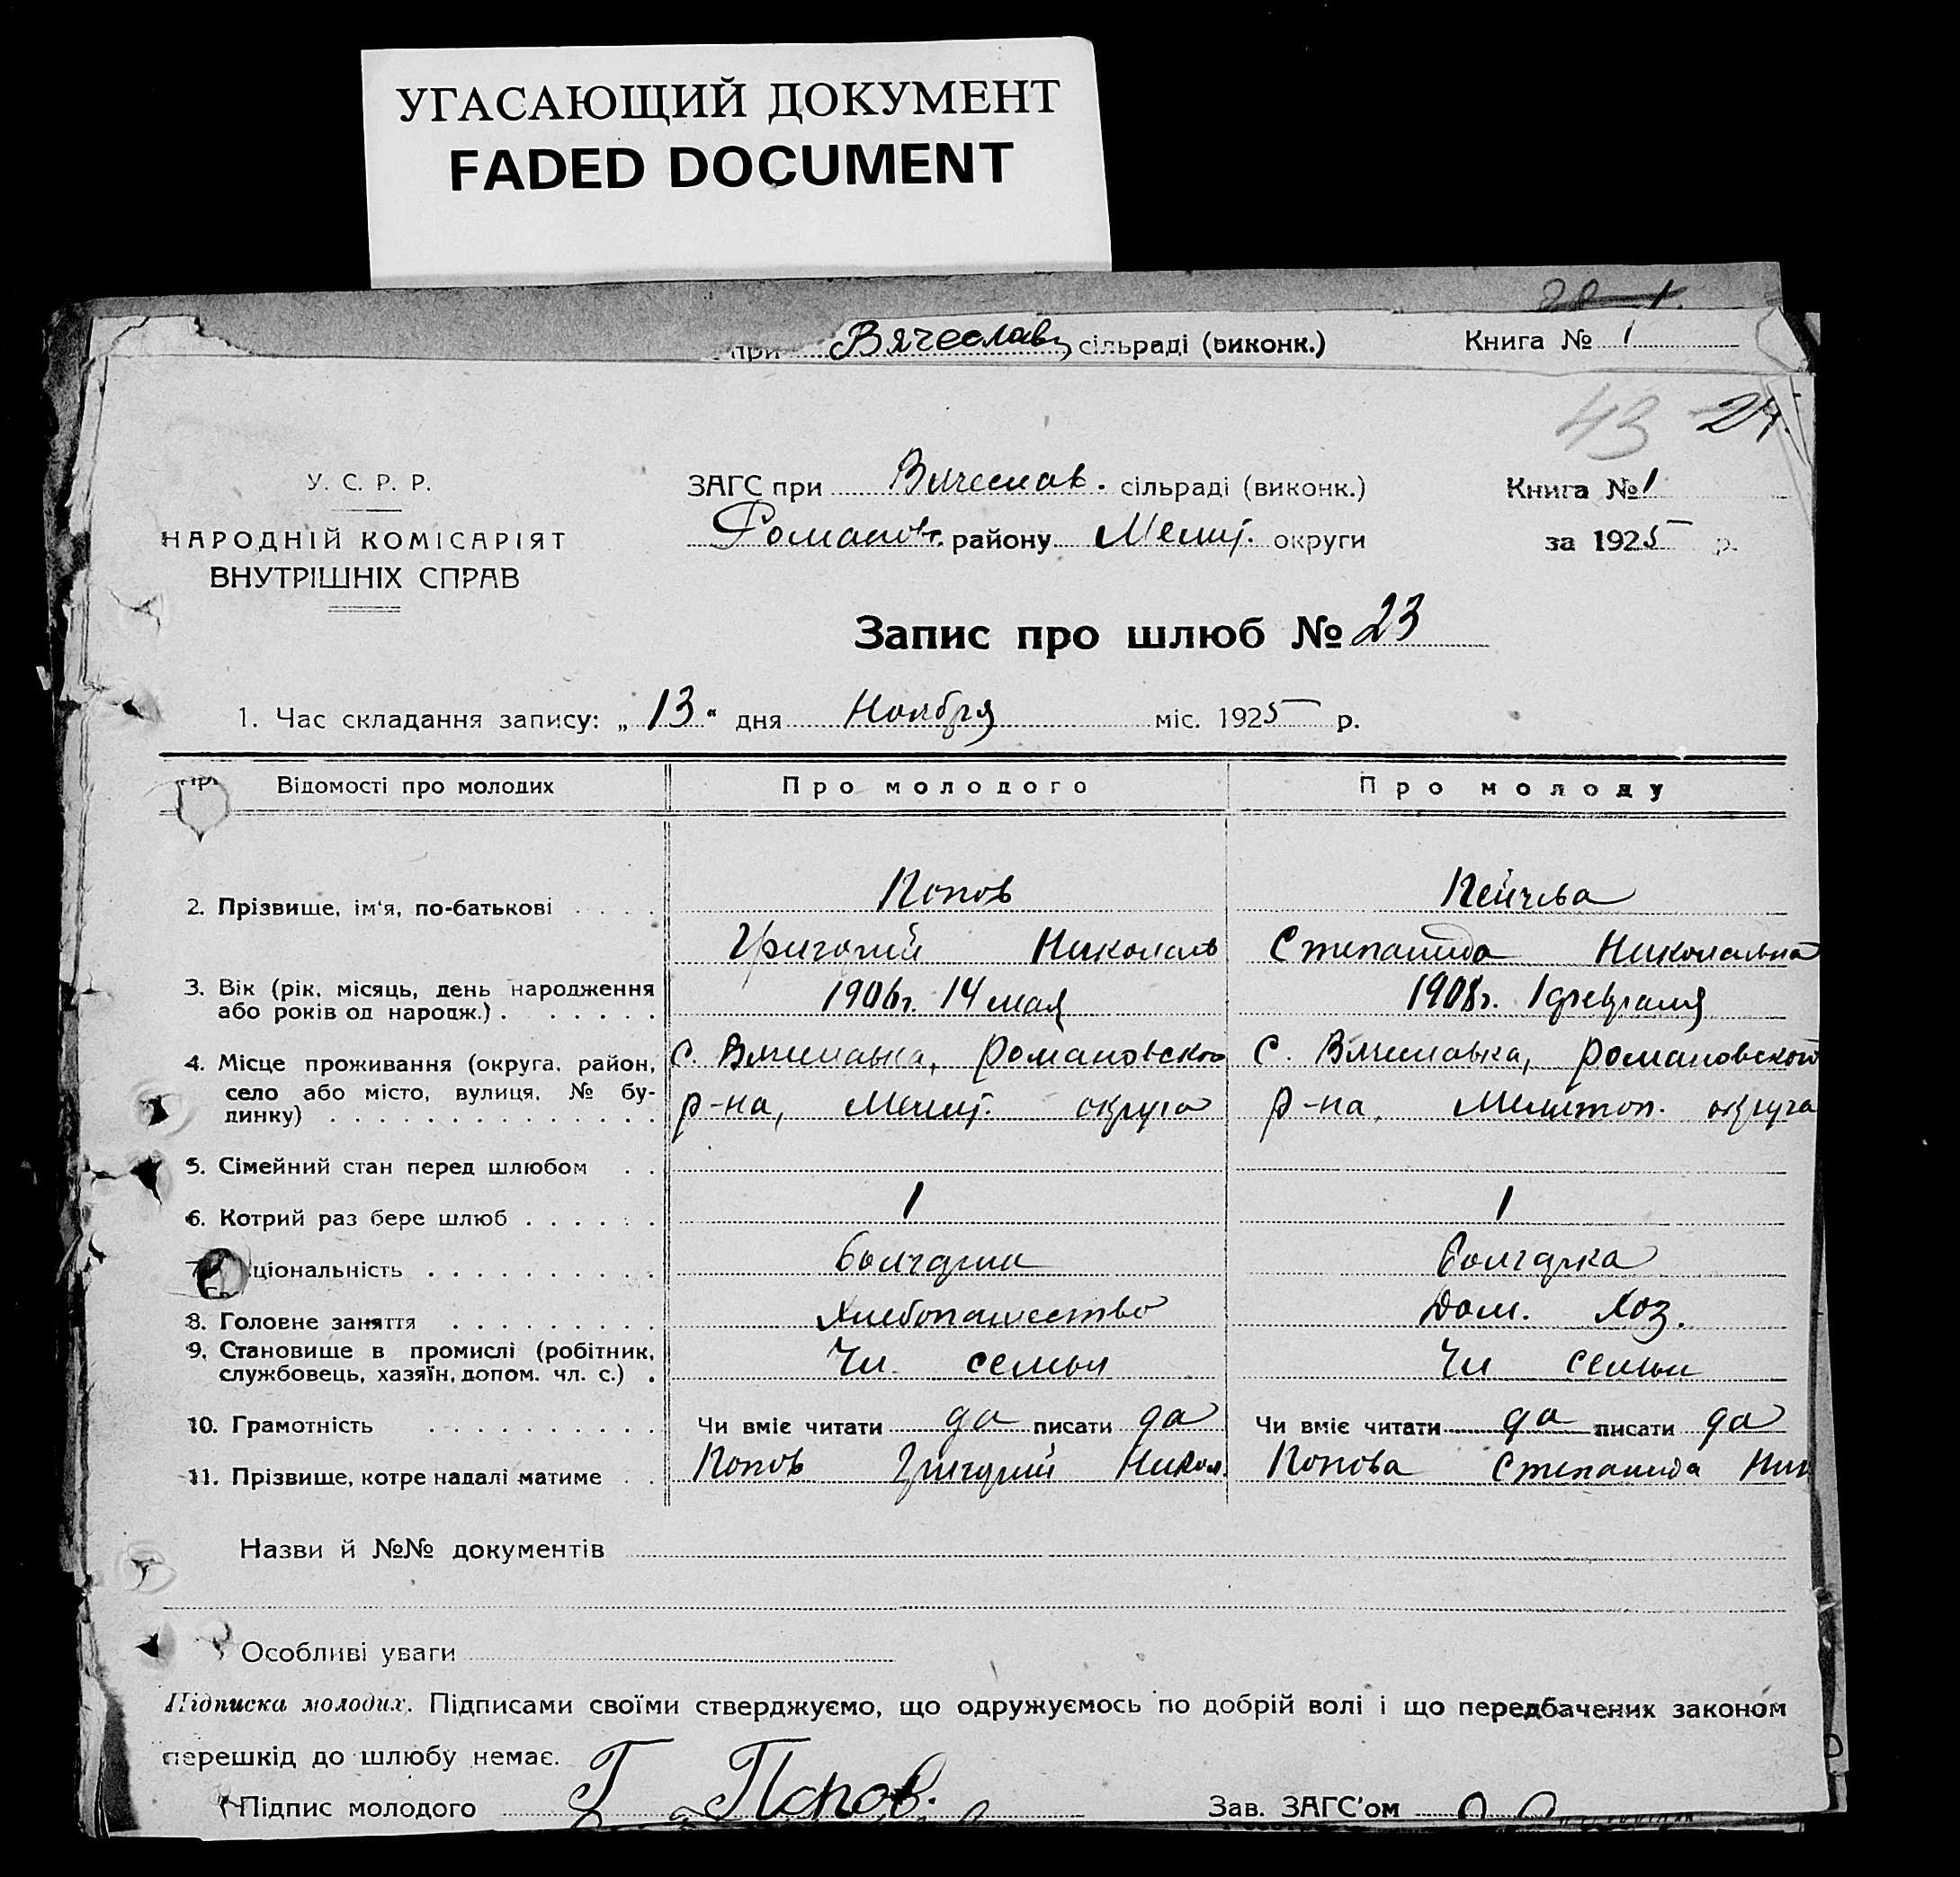 УГАСАЮЩИЙ ДОКУМЕНТ
FADED DOCUMENT
при Вячеславс сільраді (виконк.) Книга № 1
43 24.
У. С. Р. Р.
НАРОДНІЙ КОМІСАРІЯТ
ВНУТРІШНІХ СПРАВ
ЗАГС при Вячеслав. сільраді (виконк.) Книга № 1
Романов. району Мелит. округи за 1925 р.
Запис про шлюб № 23
1. Час складання запису: „13“ дня Ноября міс. 1925 р.
Відомості про молодих Про молодого Про молоду
2. Прізвище, ім'я, по-батькові Попов Пейчева
Григорий Николаев Степанида Николаевна
3. Вік (рік, місяць, день народження 1906г. 14 мая 1908г. 1 февраля
або років од народж.)
4. Місце проживання (округа, район, с. Вячеславка, Романовского с. Вячеславка, Романовского
село або місто, вулиця, № бу- р-на, Мелит. округа р-на, Мелитоп. округа
динку)
5. Сімейний стан перед шлюбом
6. Котрий раз бере шлюб 1 1
7. ціональність болгарин болгарка
8. Головне заняття Хлебопашество Дом. хоз.
9. Становище в промислі (робітник, Чл. семьи Чл семьи
службовець, хазяїн, допом. чл. с.)
10. Грамотність Чи вміє читати да писати да Чи вміє читати да писати да
11. Прізвище, котре надалі матиме Попов Григорий Никол. Попова Степанида Ник
Назви й №№ документів
Особливі уваги
Підписка молодих. Підписами своїми стверджуємо, що одружуємось по добрій волі і що передбачених законом
перешкід до шлюбу немає.
Підпис молодого Г Попов. Зав. ЗАГС'ом